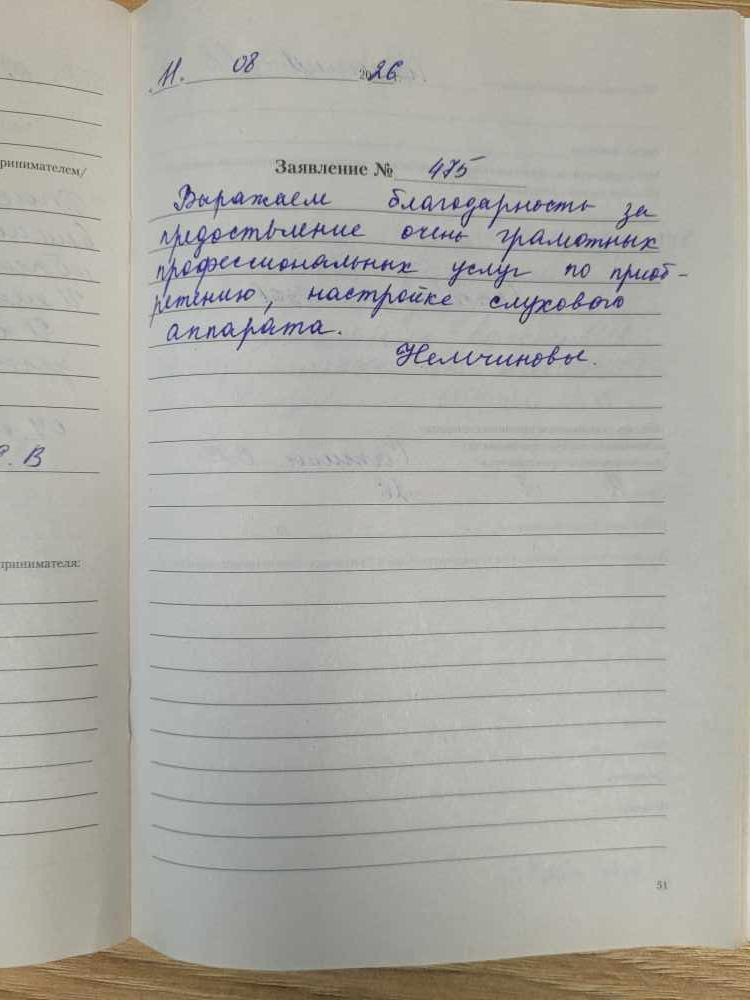 11. 08 2026
ринимателем/
Заявление № 475
Выражаем благодарность за
предоствление очень грамотных
профессиональных услуг по приоб-
ретению, настройке слухового
аппарата.
Немчиновы.
В
принимателя:
51